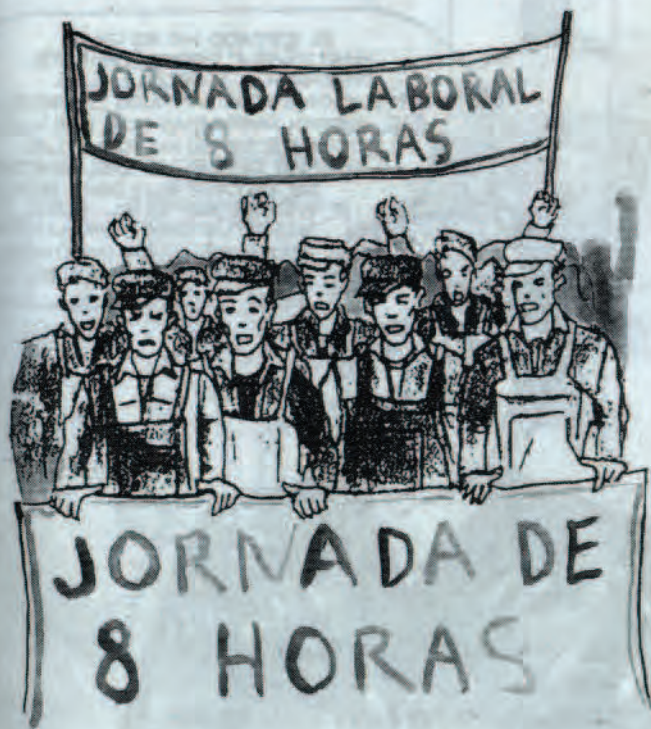 JORNADA LABORAL
DE 8 HORAS
JORNADA DE
8 HORAS